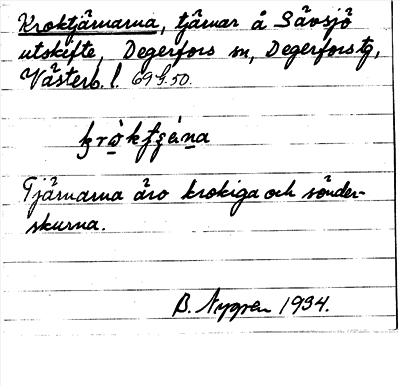 Kroktjärnarna, tjärnar å Sävsjö
utskifte, Degerfors sn, Degerfors tg,
Västerb. l.
Tjärnarna äro krokiga och sönder-
skurna.
B. Nygren 1934.